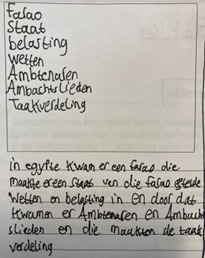 Farao
Staat
belasting
Wetten
Ambtenaren
Ambachtslieden
Taakverdeling
in egypte kwam er een farao die
maakte er een staat van die farao stelde
Wetten en belasting in en door dat
kwamen er Ambtenaren en Ambacht
slieden en die maakten de taak
verdeling